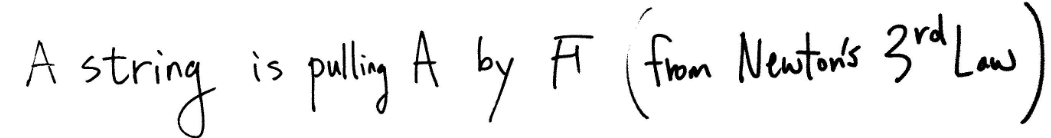 A string is pulling A by F (from Newton's 3rd Law)